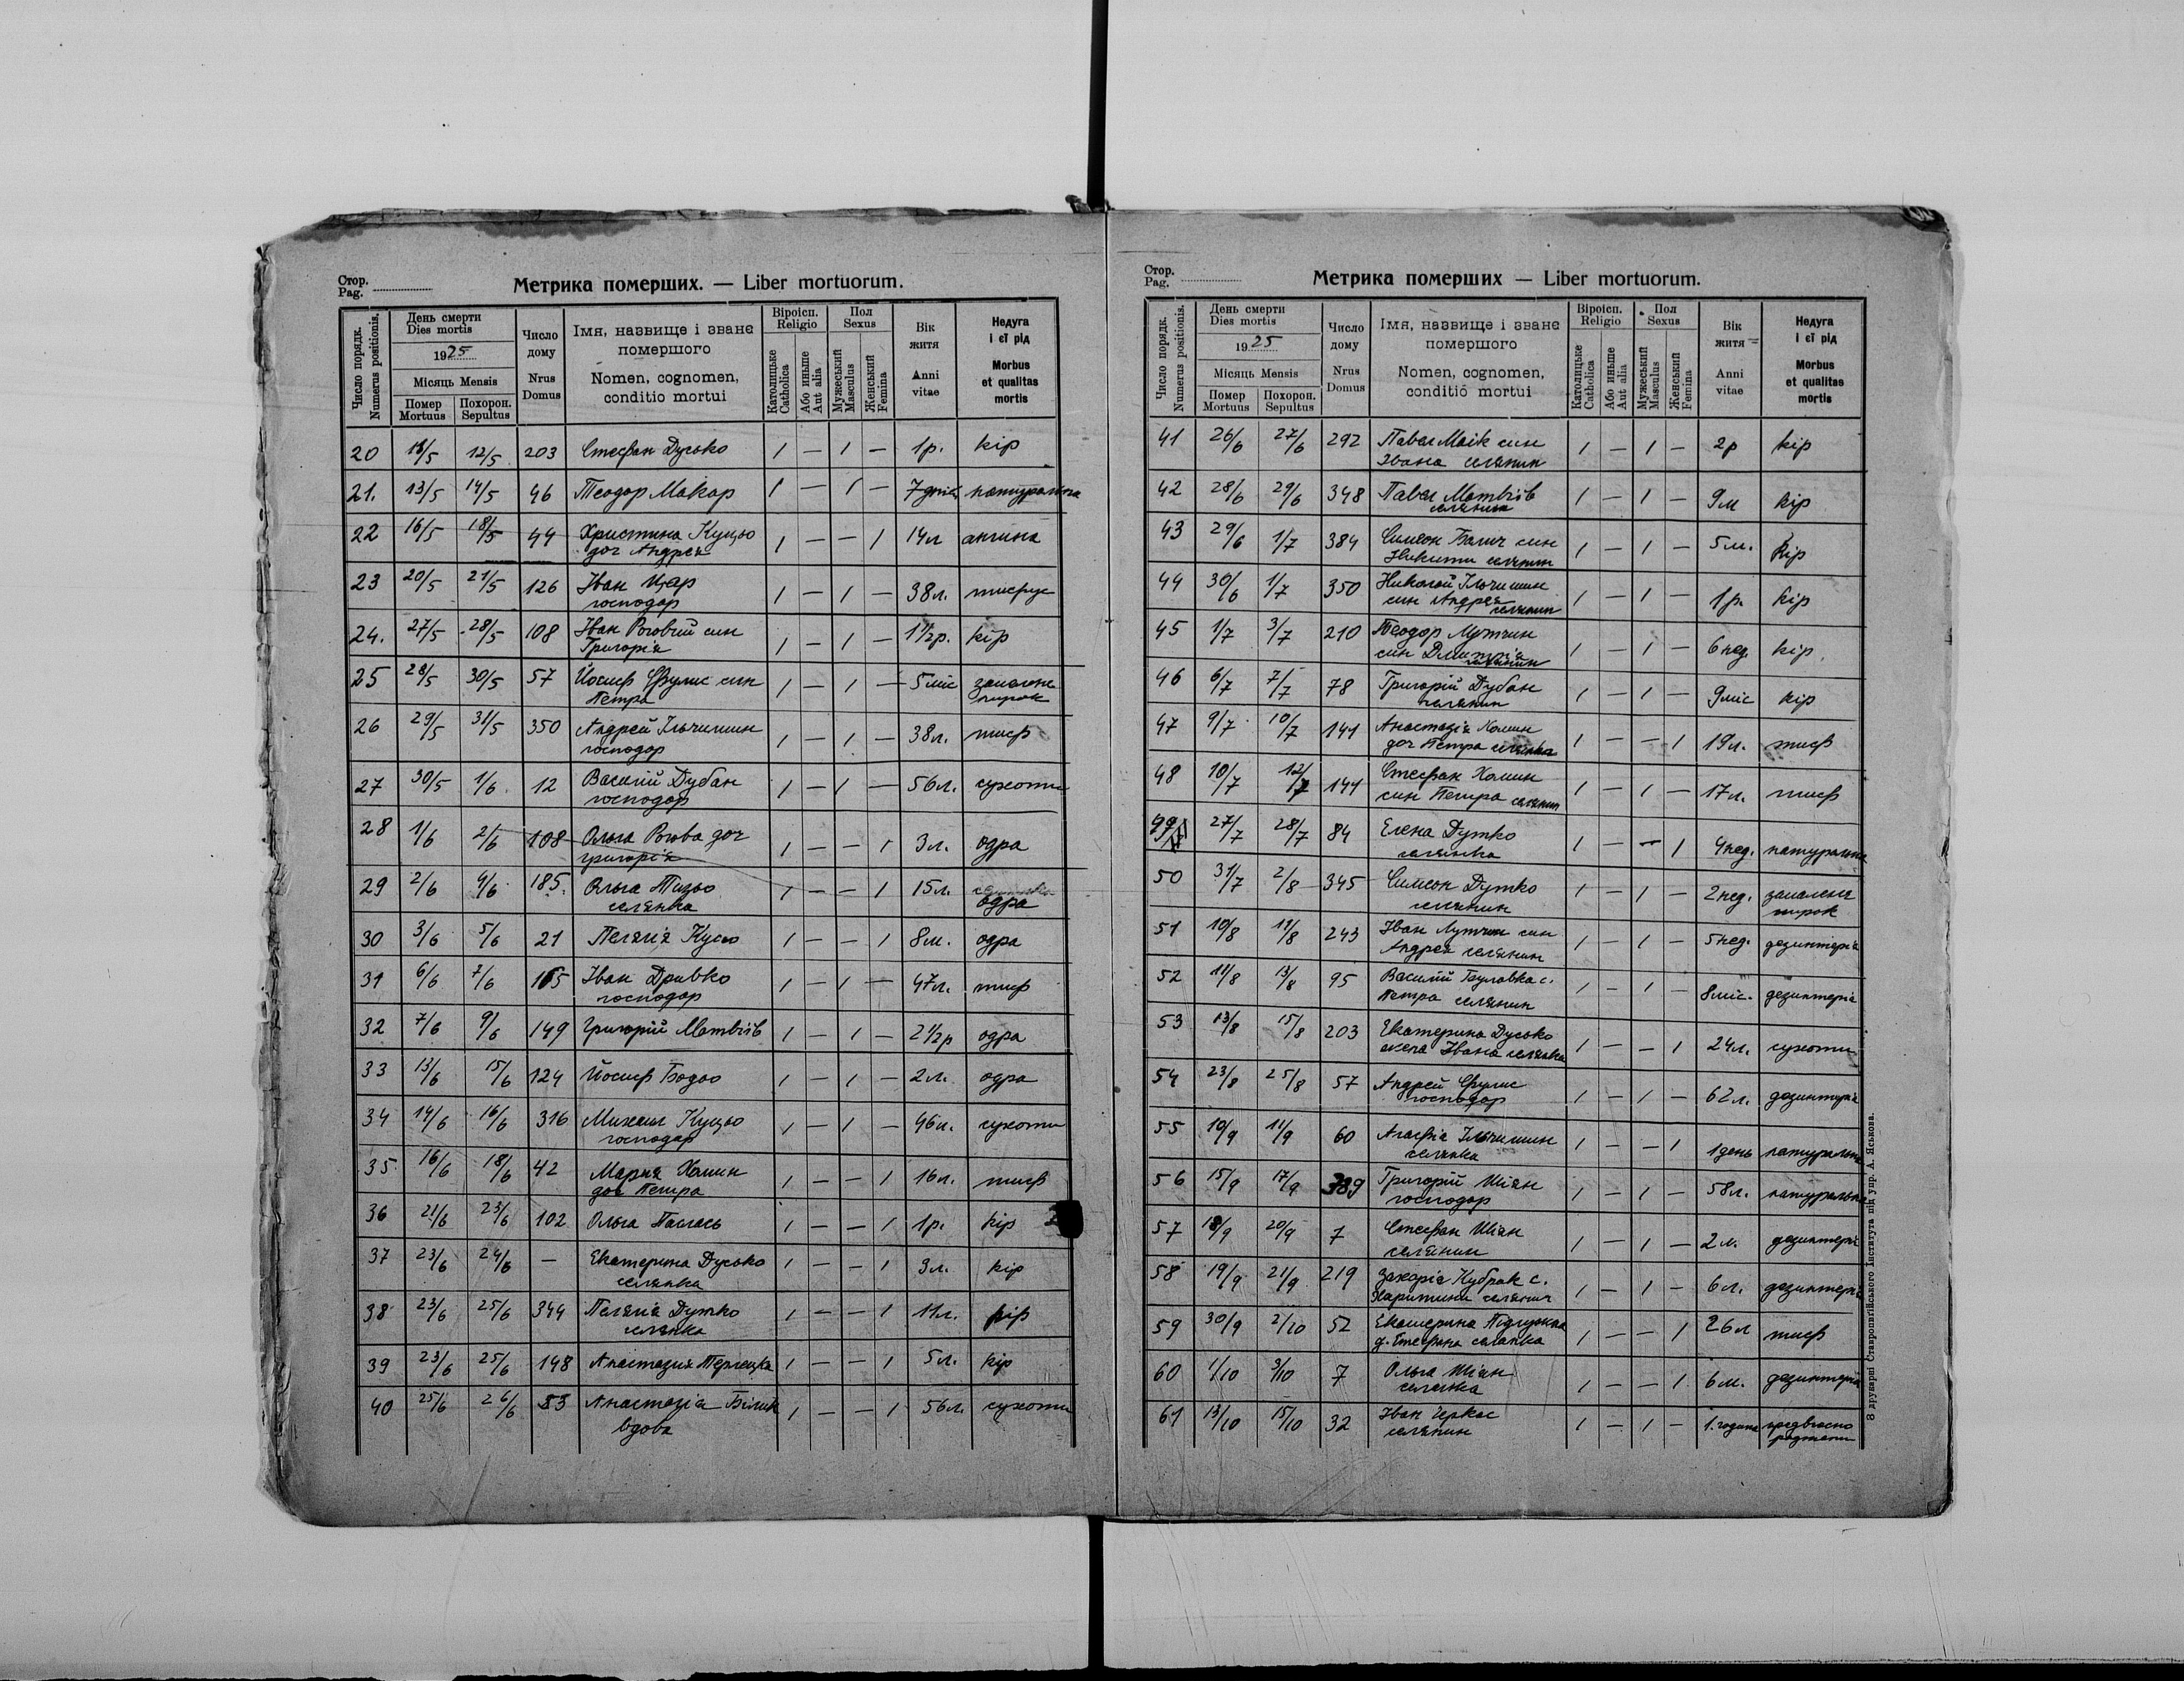 Стор.
Pag.
Метрика померших. — Liber mortuorum.
Число порядк.
Numerus positionis.
День смерти
Dies mortis
1925
Місяць Mensis
Помер
Mortuus
Похорон.
Sepultus
Число
дому
Nrus
Domus
Імя, назвище і зване
помершого
Nomen, cognomen,
conditio mortui
Віроісп.
Religio
Католицьке
Catholica
Або иньше
Aut alia
Пол
Sexus
Мужеський
Masculus
Женський
Femina
Вік
житя
Anni
vitae
Недуга
і єї рід
Morbus
et qualitas
mortis
20 12/5 203 Стефан Дусько 1 — 1 — 1р. кір
21. 13/5 14/5 46 Теодор Макар 1 — 1 — 7 днів натуральна
22 16/5 18/5 44 Христина Куцьо 1 — — 1 14л ангина
доч Андрея
23 20/5 21/5 126 Іван Цар 1 — 1 — 38л. тифус
господар
24. 27/5 28/5 108 Іван Роговий син 1 — 1 — 1 1/2р. кір
Григорія
25 28/5 30/5 57 Йосиф Фулис син 1 — 1 — 5 міс запалене
Петра
26 29/5 31/5 350 Андрей Ільчишин 1 — 1 — 38л. тиф
господар
27 30/5 1/6 12 Василій Дубан 1 — 1 — 56л. сухоти
господар
28 1/6 2/6 108 Ольга Рогова доч 1 — — 1 3л. одра
Григорія
29 2/6 4/6 185. Ольга Тизьо 1 — — 1 15л.
селянка одра
30 3/6 5/6 21 Пелягія Кусьо 1 — — 1 8м. одра
31 6/6 7/6 165 Іван Дривко 1 — 1 — 47л. тиф
господар
32 7/6 9/6 149 Григорій Матвіів 1 — 1 — 2 1/2р одра
33 13/6 15/6 124 Йосиф Бодьо 1 — 1 — 2л. одра
34 14/6 16/6 316 Михаил Куцьо 1 — 1 — 46л. сухоти
господар
35 16/6 18/6 42 Мария Хомин 1 — — 1 16л. тиф
доч Петра
36 21/6 23/6 102 Ольга Паслась 1 — — 1 1р. кір
37 23/6 24/6 — Екатерина Дусько 1 — — 1 3л. кір
селянка
38 23/6 25/6 344 Пелягія Дутко 1 — — 1 11л. кір
селянка
39 23/6 25/6 148 Анастазия 1 — — 1 5л. кір
40 25/6 26/6 53 Анастазія Білик 1 — — 1 56л. сухоти
вдова
Стор.
Pag.
Метрика померших — Liber mortuorum.
Число порядк.
Numerus positionis.
День смерти
Dies mortis
1925
Місяць Mensis
Помер
Mortuus
Похорон.
Sepultus
Число
дому
Nrus
Domus
Імя, назвище і зване
помершого
Nomen, cognomen,
conditio mortui
Віроісп.
Religio
Католицьке
Catholica
Або иньше
Aut alia
Пол
Sexus
Мужеський
Masculus
Женський
Femina
Вік
житя
Anni
vitae
Недуга
і єї рід
Morbus
et qualitas
mortis
41 26/6 27/6 292 Павел Маїк син 1 — 1 — 2р кір
Івана селянин
42 28/6 29/6 348 Павел Матвіїв 1 — 1 — 9м кір
селянин
43 29/6 1/7 384 Симеон син 1 — 1 — 5м. кір
Никити селянин
44 30/6 1/7 350 Николай Ільчишин 1 — 1 — 1р. кір
син Андрея селянин
45 1/7 3/7 210 Теодор Лутчин 1 — 1 — 6 нед. кір
син Дмитрія селянин
46 6/7 7/7 78 Григорій Дубан 1 — 1 — 9міс кір
селянин
47 9/7 10/7 141 Анастазія Хомин 1 — — 1 19л. тиф
доч Петра селянка
48 10/7 12/7 141 Стефан Хомин 1 — 1 — 17л. тиф
син Петра селянин
49 27/7 28/7 84 Елена Дутко 1 — — 1 4нед. натуральна
селянка
50 31/7 2/8 345 Симеон Дутко 1 — 1 — 2нед. запалене
селянин
51 10/8 11/8 243 Іван Лутчин син 1 — 1 — 5нед. дезинтерія
Андрея селянин
52 11/8 13/8 95 Василій с. 1 — 1 — 8міс. дезинтеріа
Петра селянин
53 13/8 15/8 203 Екатерина Дусько 1 — — 1 24л. сухоти
жена Івана селянка
54 23/8 25/8 57 Андрей Фулис 1 — 1 — 62л. дезинтеріа
господар
55 10/9 11/9 60 Агафіа Ільчишин 1 — — 1 1день натуральна
селянка
56 15/9 17/9 389 Григорій Шіян 1 — 1 — 58л. натуральна
господар
57 18/9 20/9 7 Стефан Шіян 1 — 1 — 2м. дезинтеріа
селянин
58 19/9 21/9 219 Захаріа Кубрак с. 1 — 1 — 6л. дезинтеріа
Харитини селянин
59 30/9 2/10 52 Екатерина 1 — — 1 26л тиф
д. Стефана селянка
60 1/10 3/10 7 Ольга Шіян 1 — — 1 6м. дезинтеріа
селянка
61 13/10 15/10 32 Іван Черкас 1 — 1 — 1. година
селянин
З друкарні Ставропігійського Інститута під упр. А. Яськова.